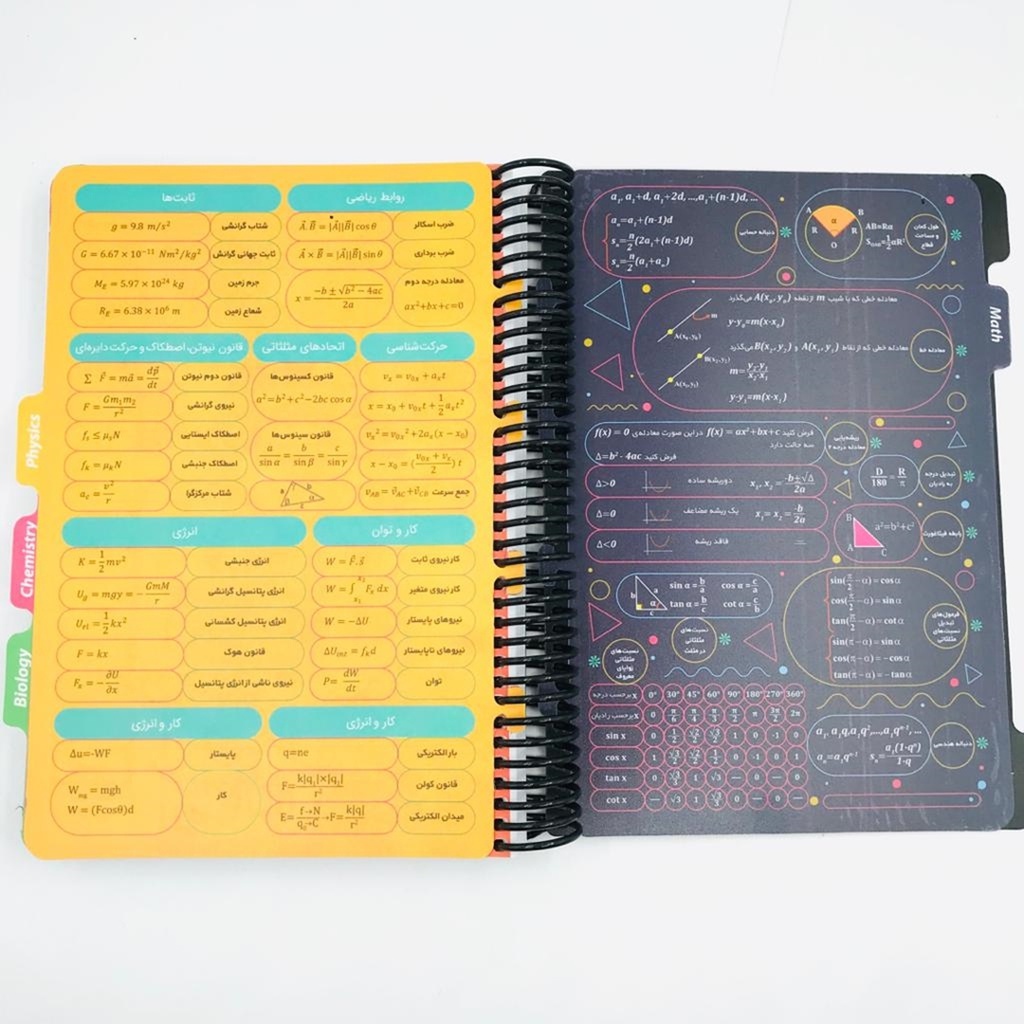 روابط ریاضی
ضرب اسکالر A⃗.B⃗ = |A⃗||B⃗| cos θ
ضرب برداری A⃗ × B⃗ = |A⃗||B⃗| sin θ
معادله درجه دوم x = (-b ± √(b² − 4ac))/2a
ax²+bx+c=0
ثابت‌ها
شتاب گرانشی g = 9.8 m/s²
ثابت جهانی گرانش G = 6.67 × 10⁻¹¹ Nm²/kg²
جرم زمین M_E = 5.97 × 10²⁴ kg
شعاع زمین R_E = 6.38 × 10⁶ m
حرکت‌شناسی
vₓ = v₀ₓ + aₓt
x = x₀ + v₀ₓt + 1/2 aₓt²
vₓ² = v₀ₓ² + 2aₓ(x − x₀)
x − x₀ = ((v₀ₓ + vₓ)/2) t
جمع سرعت v⃗_AB = v⃗_AC + v⃗_CB
اتحادهای مثلثاتی
قانون کسینوس‌ها
a²=b²+c²−2bc cos α
قانون سینوس‌ها
a/sin α = b/sin β = c/sin γ
قانون نیوتن، اصطکاک و حرکت دایره‌ای
قانون دوم نیوتن ∑ F⃗ = ma⃗ = dp⃗/dt
نیروی گرانشی F = Gm₁m₂/r²
اصطکاک ایستایی fₛ ≤ μₛN
اصطکاک جنبشی fₖ = μₖN
شتاب مرکزگرا a_c = v²/r
کار و توان
کار نیروی ثابت W = F⃗.s⃗
کار نیروی متغیر W = ∫ Fₓ dx
نیروهای پایستار W = −ΔU
نیروهای ناپایستار ΔU_int = fₖd
توان P= dW/dt
انرژی
انرژی جنبشی K = 1/2 mv²
انرژی پتانسیل گرانشی U_g = mgy = − GmM/r
انرژی پتانسیل کشسانی U_el = 1/2 kx²
قانون هوک F = kx
نیروی ناشی از انرژی پتانسیل Fₓ = − ∂U/∂x
کار و انرژی
بار الکتریکی q=ne
قانون کولن F= k|q₁|×|q₂|/r²
میدان الکتریکی E= f→N/q₀→C →F= k|q|/r²
کار و انرژی
پایستار Δu=-WF
کار
W_mg = mgh
W = (Fcosθ)d
Physics
Chemistry
Biology
Math
طول کمان و مساحت قطاع
AB=Rα
S_OAB=1/2 αR²
A α B
R R
O
دنباله حسابی
a₁, a₁+d, a₁+2d, ...,a₁+(n-1)d, ...
aₙ=a₁+(n-1)d
sₙ=n/2(2a₁+(n-1)d)
sₙ=n/2(a₁+aₙ)
معادله خط
معادله خطی که با شیب m از نقطه A(x₀, y₀) می‌گذرد
y-y₀=m(x-x₀)
m
A(x₀,y₀)
معادله خطی که از نقاط A(x₁, y₁) و B(x₂, y₂) می‌گذرد
B(x₂,y₂)
A(x₁,y₁)
y-y₁=m(x-x₁)
ریشه‌یابی معادله درجه ۲
فرض کنید f(x) = ax²+bx+c در این صورت معادله‌ی f(x) = 0
سه حالت دارد
فرض کنید Δ=b²- 4ac
Δ>0 دو ریشه ساده x₁, x₂ = (-b±√Δ)/2a
Δ=0 یک ریشه مضاعف x₁ = x₂ = -b/2a
Δ<0 فاقد ریشه
تبدیل درجه به رادیان
D/180 = R/π
رابطه فیثاغورث
a²=b²+c²
B
A C
نسبت‌های مثلثاتی در مثلث
sin α = b/a cos α = c/a
tan α = b/c cot α = c/b
b a α c
فرمول‌های تبدیل نسبت‌های مثلثاتی
sin(π/2 − α) = cos α
cos(π/2 − α) = sin α
tan(π/2 − α) = cot α
sin(π − α) = sin α
cos(π − α) = − cos α
tan(π − α) = − tan α
نسبت‌های مثلثاتی زوایای معروف
x برحسب درجه 0° 30° 45° 60° 90° 180° 270° 360°
x برحسب رادیان 0 π/6 π/4 π/3 π/2 π 3π/2 2π
sin x 0 1/2 √2/2 √3/2 1 0 -1 0
cos x 1 √3/2 √2/2 1/2 0 -1 0 1
tan x 0 √3/3 1 √3 — 0 — 0
cot x — √3 1 √3/3 0 — 0 —
دنباله هندسی
a₁, a₁q, a₁q²,...,a₁qⁿ⁻¹, ...
aₙ=a₁qⁿ⁻¹ Sₙ= a₁(1-qⁿ)/1-q